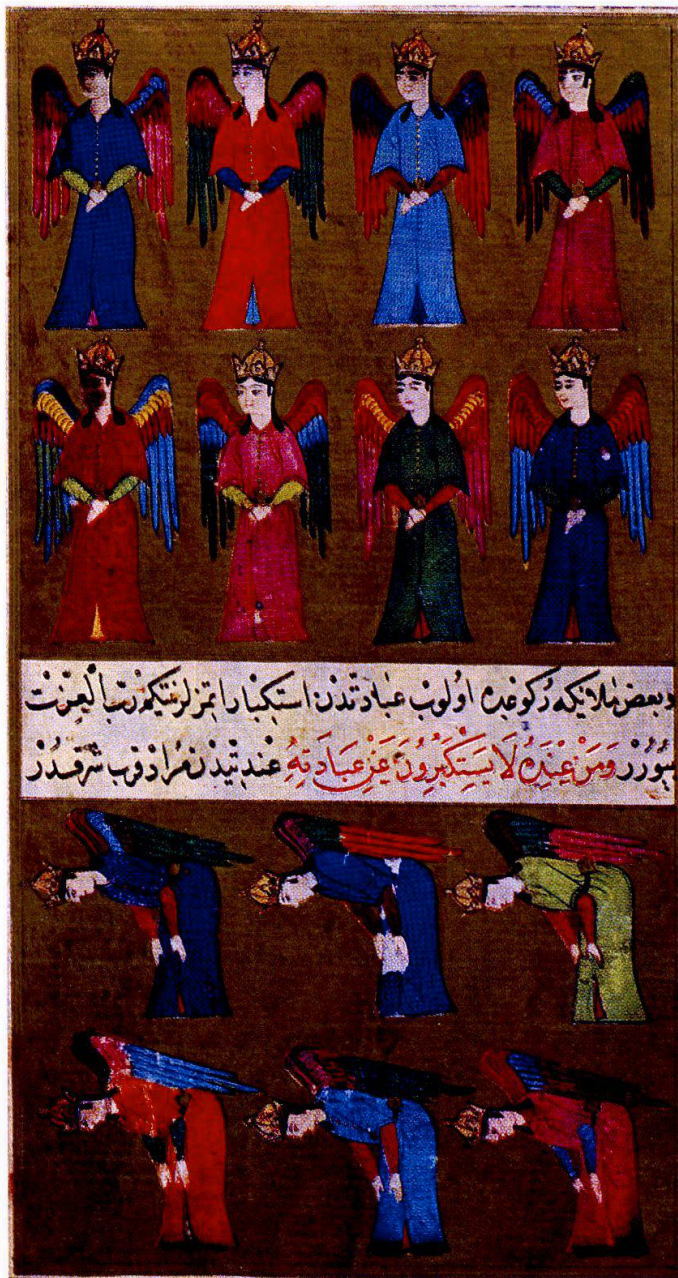 وبعض ملائكه ركوعده اولوب عبادتدن استكبار ايتمزلر نتكيم رب العزت
بيورر وَمَنْ عِنْدَهُ لَا يَسْتَكْبِرُونَ عَنْ عِبَادَتِهِ عنديتدن مراد قرب شرفدر